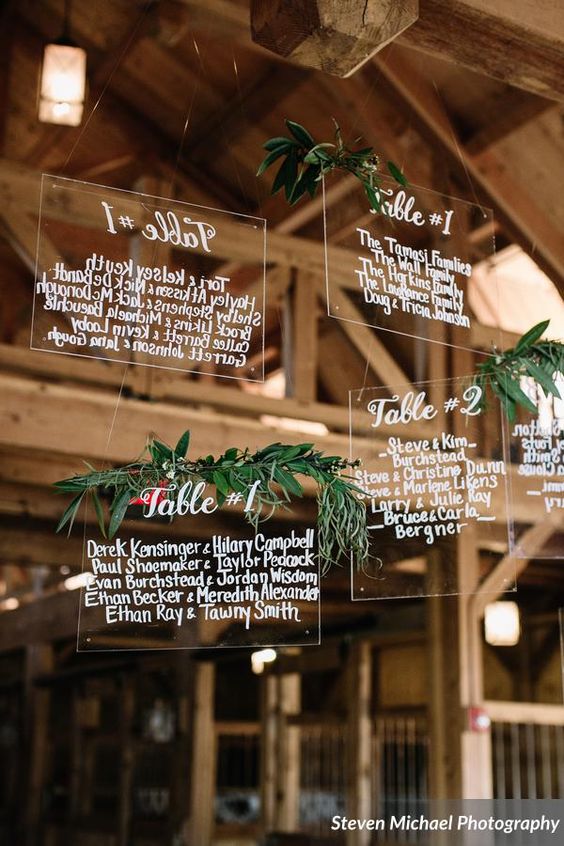 Table #1
Tori & Kelsey Keuth
Hayley Atkisson & Nick DeBandt
Shelby Stephens & Jack McDonough
Brock Likins & Michaela Baeuchle
Callee Barrett & Kevin Looby
Garrett Johnson & Jana Gough
Table #1
The Tamasi Families
The Wall Family
The Harkins Family
The Lawrance Family
Doug & Tricia Johnson
Table #2
Steve & Kim
Burchstead
Steve & Christine Dunn
Steve & Marlene Likens
Larry & Julie Ray
Bruce & Carla
Bergner
Table #1
Derek Kensinger & Hilary Campbell
Paul Shoemaker & Taylor Peacock
Evan Burchstead & Jordan Wisdom
Ethan Becker & Meredith Alexander
Ethan Ray & Tawny Smith
Steven Michael Photography